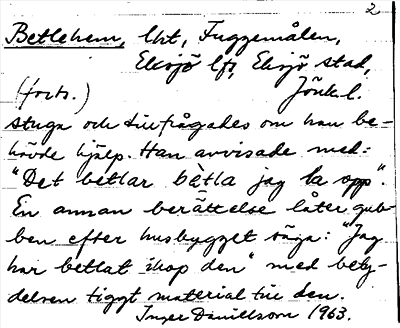 2
Betlehem, lht, Fuggemålen,
Eksjö lfs, Eksjö stad,
(forts.) Jönk l.
stuga och tillfrågades om han be-
hövde hjälp. Han avvisade med:
"Det betlar bètla jag la opp".
En annan berättelse låter gub-
ben efter husbygget säga: "Jag
har betlat ihop den" med bety-
delsen tiggt material till den.
Inger Danielsson 1963.